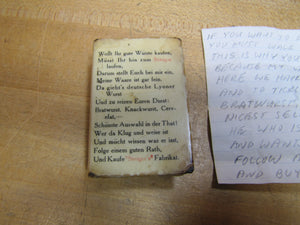 Wollt Ihr gute Wurste kaufen,
Müsst Ihr hin zum Steiger
laufen,
Darum stellt Euch bei mir ein,
Meine Waare ist gar fein.
Da giebt's deutsche Lyoner
Wurst
Und zu reizen Euren Durst:
Bratwurst, Knackwurst, Cerv-
elat,—
Schönste Auswahl in der That!
Wer da Klug und weise ist
Und möcht wissen was er isst,
Folge einem guten Rath,
Und Kaufe Steiger's Fabrikat.
IF YOU WANT TO
YOU MUST WALK
THIS IS WHY YOU
BECAUSE MY
HERE WE HAVE
AND TO
BRATWURST
NICEST SEL
HE WHO
AND WANT
FOLLOW
AND BUY